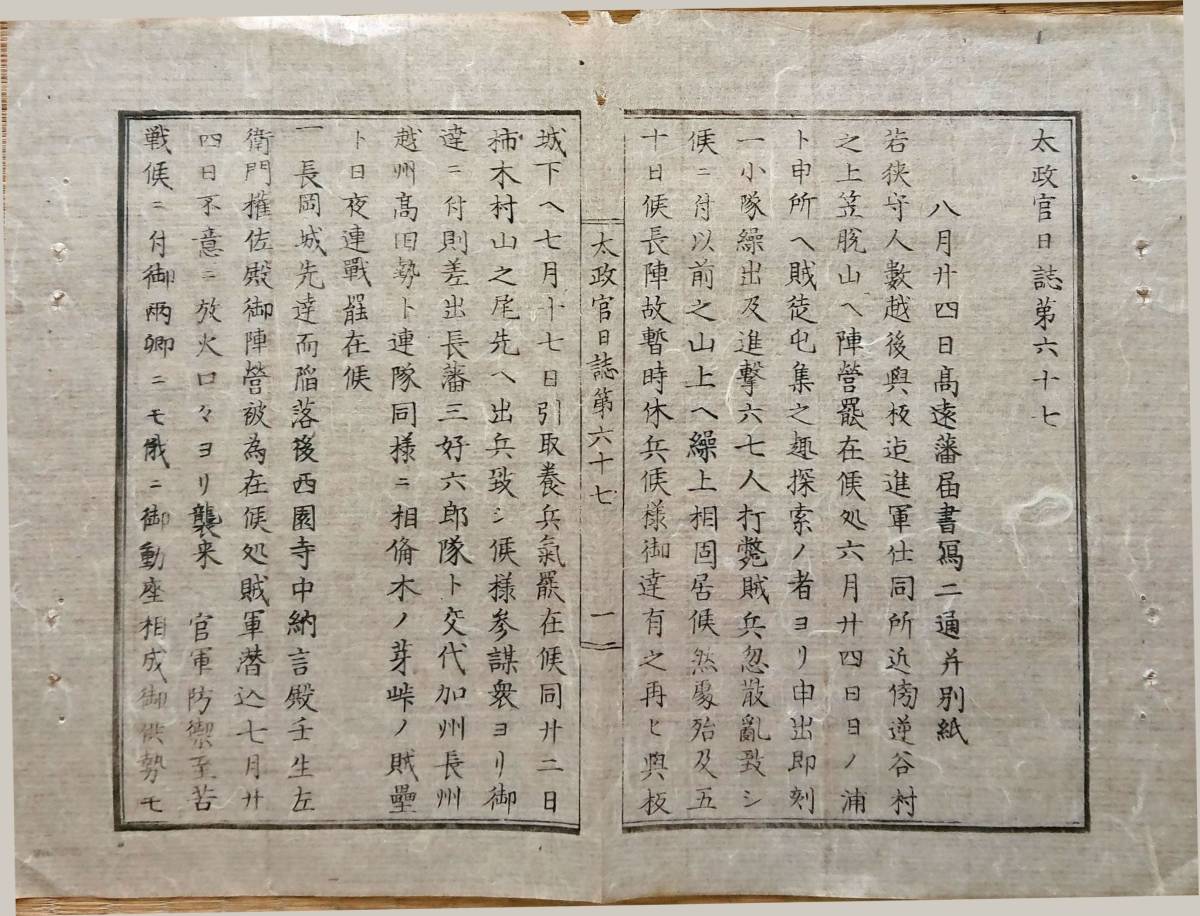 太政官日誌第六十七
八月廿四日高遠藩届書寫二通并別紙
若狹守人數越後與板迠進軍仕同所近傍逆谷村
之上笠脱山ヘ陣營罷在候処六月廿四日日ノ浦
ト申所ヘ賊徒屯集之趣探索ノ者ヨリ申出即刻
一小隊繰出及進撃六七人打斃賊兵忽散亂致シ
候ニ付以前之山上ヘ繰上相固居候然處殆及五
十日候長陣故暫時休兵候様御達有之再ヒ與板
太政官日誌第六十七
一
城下ヘ七月十七日引取養兵氣罷在候同廿二日
柿木村山之尾先ヘ出兵致シ候様參謀衆ヨリ御
達ニ付則差出長藩三好六郎隊ト交代加州長州
越州高田勢ト連隊同様ニ相備木ノ芽峠ノ賊壘
ト日夜連戰罷在候
一長岡城先達而陥落後西園寺中納言殿壬生左
衛門権佐殿御陣營被為在候処賊軍潜込七月廿
四日不意ニ放火口々ヨリ襲来　官軍防禦至苦
戦候ニ付御兩卿ニモ俄ニ御動座相成御供勢モ